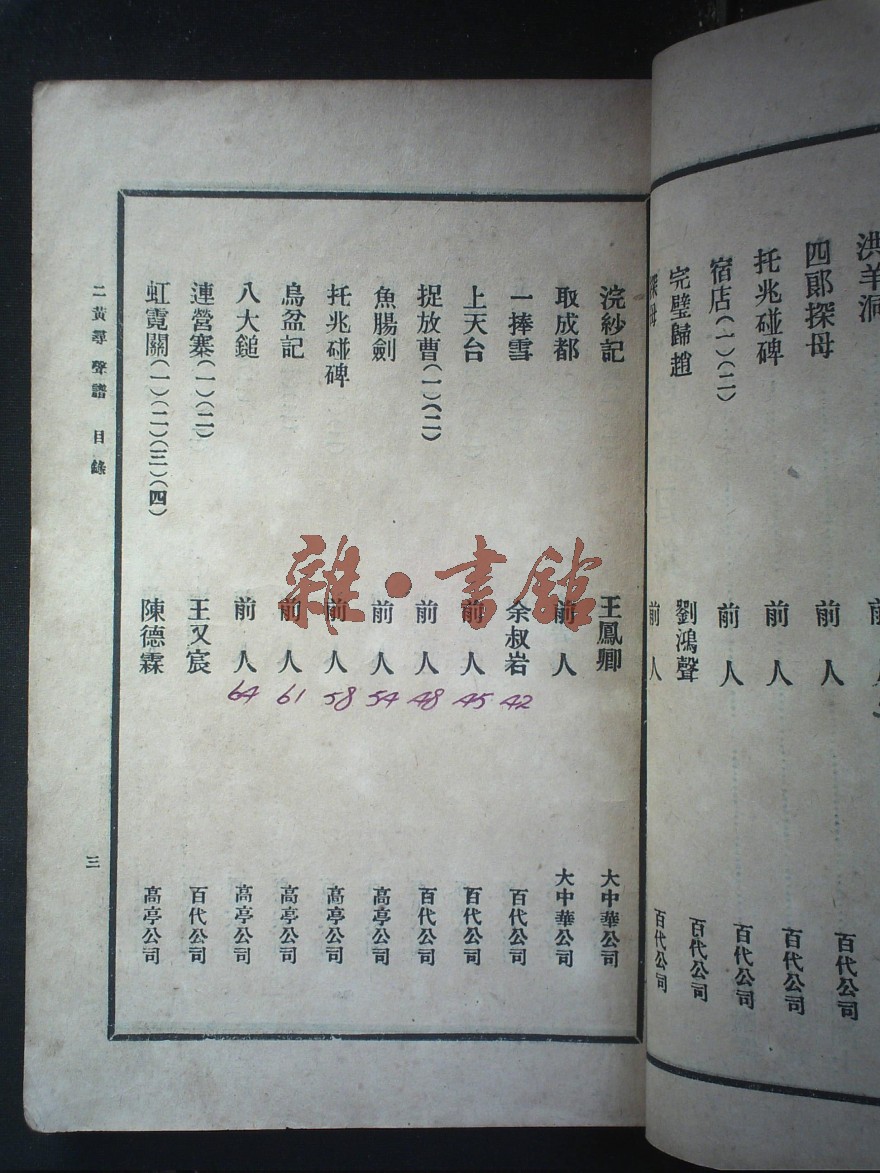 洪羊洞 前人
四郎探母 前人 百代公司
托兆碰碑 前人 百代公司
宿店(一)(二) 前人 百代公司
完璧歸趙 劉鴻聲 百代公司
探母 前人 百代公司
浣紗記 王鳳卿 大中華公司
取成都 前人 大中華公司
一捧雪 余叔岩 42 百代公司
上天台 前人 45 百代公司
捉放曹(一)(二) 前人 48 百代公司
魚腸劍 前人 54 高亭公司
托兆碰碑 前人 58 高亭公司
烏盆記 前人 61 高亭公司
八大鎚 前人 64 高亭公司
連營寨(一)(二) 王又宸 百代公司
虹霓關(一)(二)(三)(四) 陳德霖 高亭公司
二黃尋聲譜 目錄 三
雜·書館